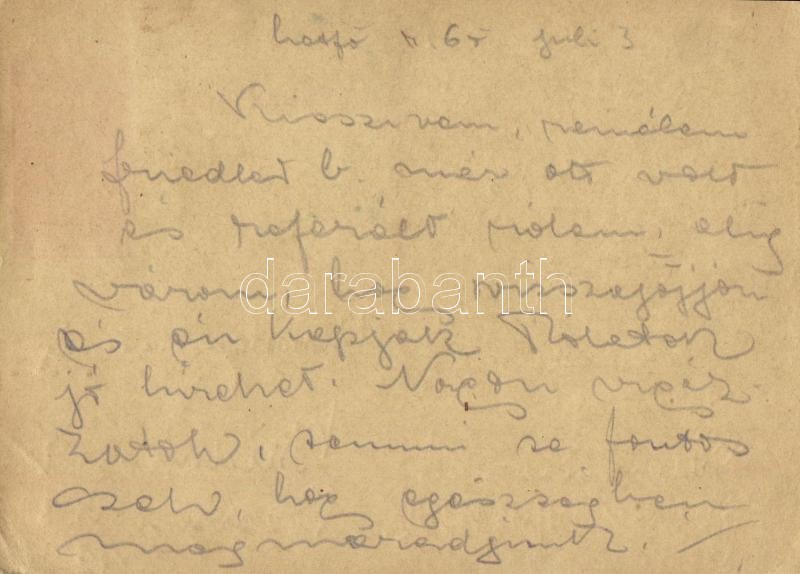 hétfő r. 65 juli 3
Kisszivem, remélem
Friedler b. már ott volt
és referált rólam, alig
várom, hog visszajőjjön
és én kapjak Rólatok
jó hireket. Nagyon vigyáz-
zatok, semmi se fontos
csak, hog egészségben
megmaradjunk. /
darabanth